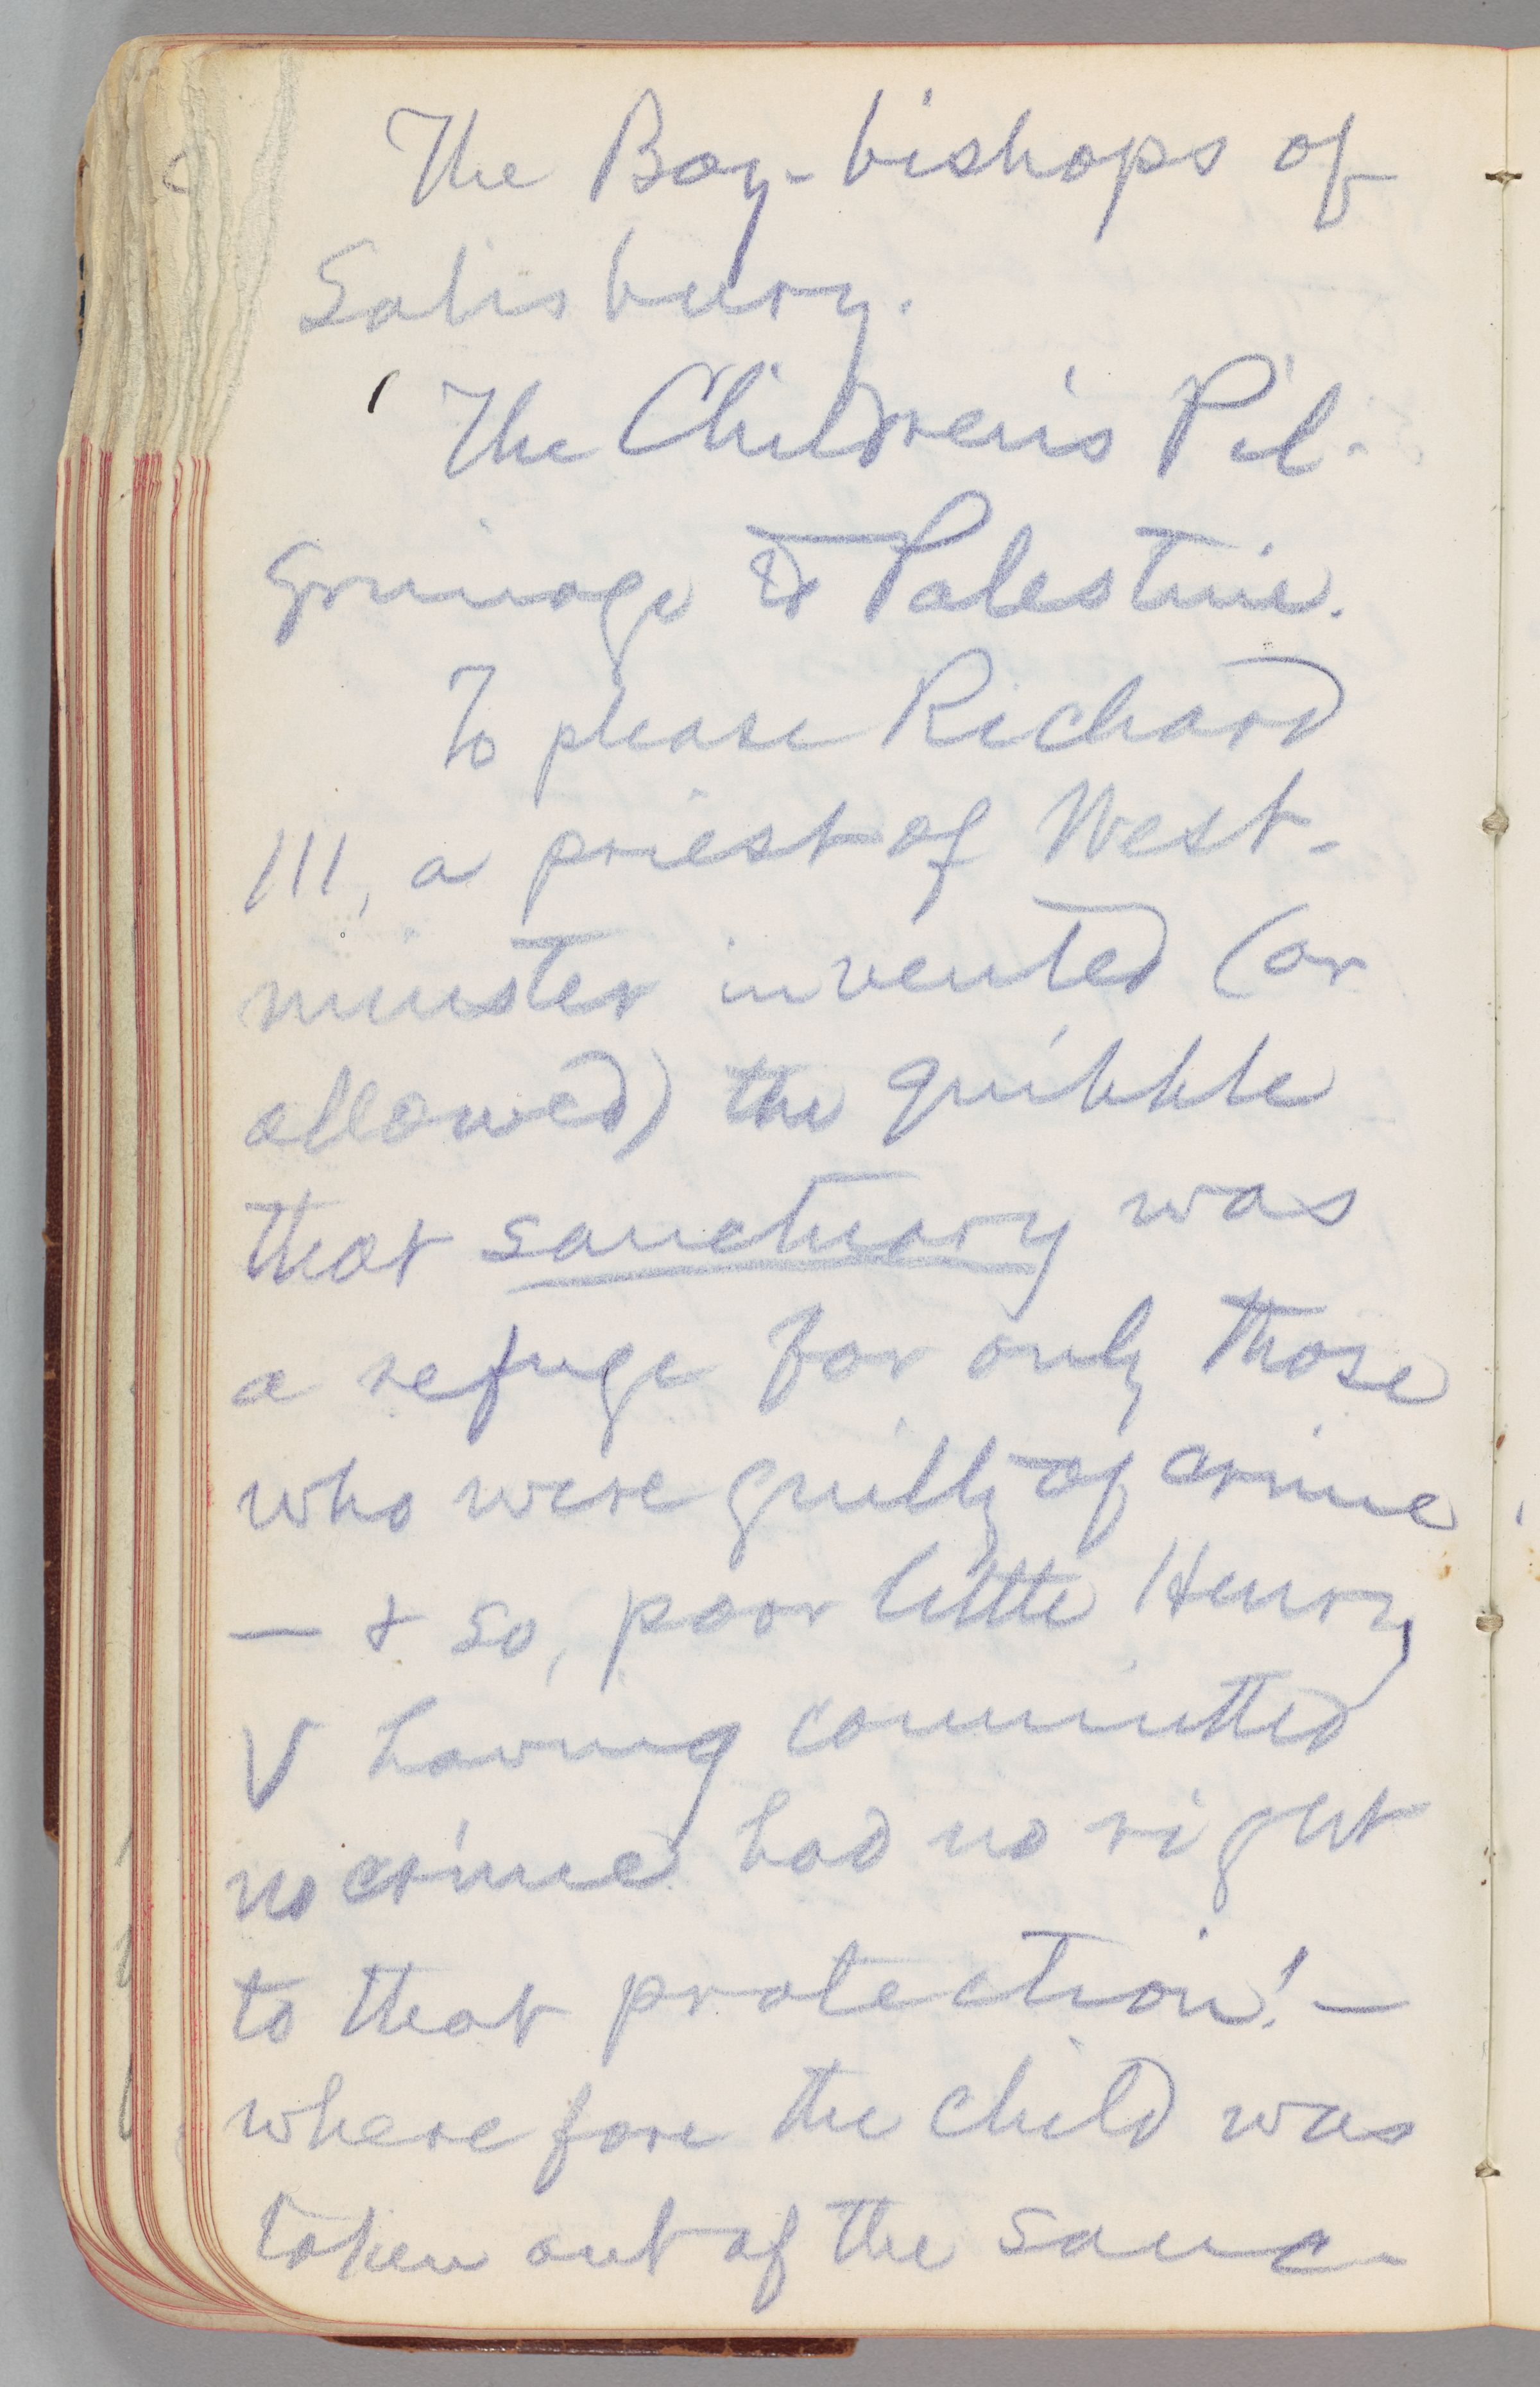 The Boy-bishops of
Salisbury.
The Children's Pil-
grimage to Palestine.
To please Richard
III, a priest of West-
minster invented (or
allowed) the quibble
that sanctuary was
a refuge for only those
who were guilty of crime
— & so, poor little Henry
V having committed
no crime had no right
to that protection! —
wherefore the child was
taken out of the sanc-